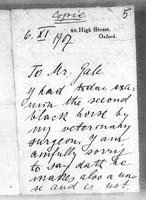 Copie
5
6. XI 1917
83, High Street,
Oxford.
To Mr. Gale
I had today exa-
min the second
black horse by
my veterinary
surgeon. I am
awfully sorry
to say dath he
makes also a noi-
se and is not